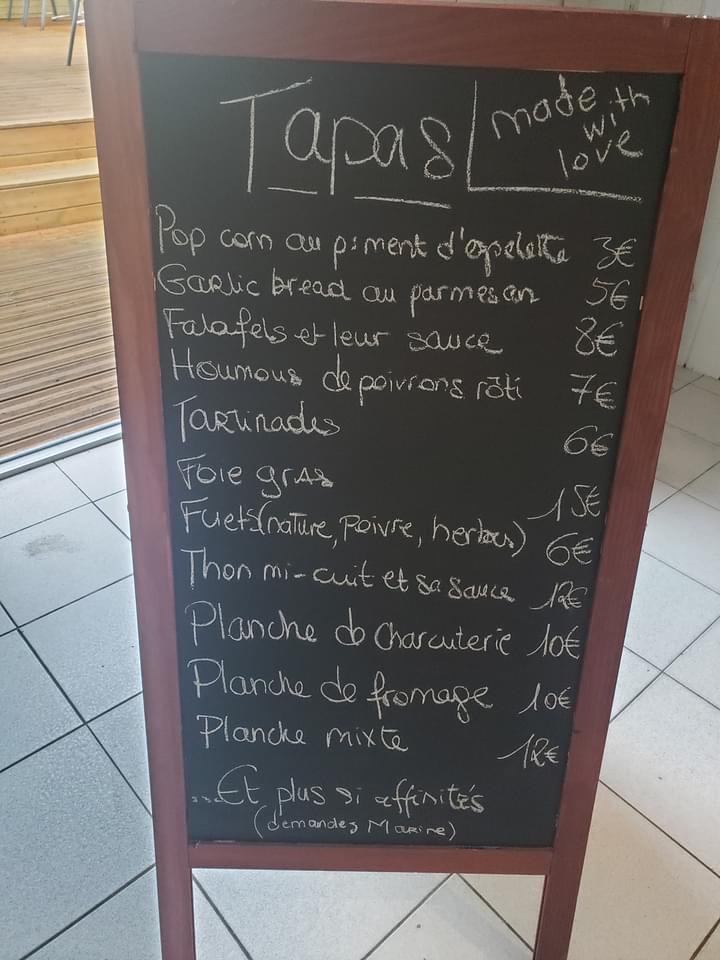 Tapas
made with love
Pop corn au piment d'espelette 3€
Garlic bread au parmesan 5€
Falafels et leur sauce 8€
Houmous de poivrons rôti 7€
Tartinades 6€
Foie gras 15€
Fuets (nature, poivre, herbes) 6€
Thon mi-cuit et sa sauce 12€
Planche de charcuterie 10€
Planche de fromage 10€
Planche mixte 12€
...Et plus si affinités
(demandez Marine)